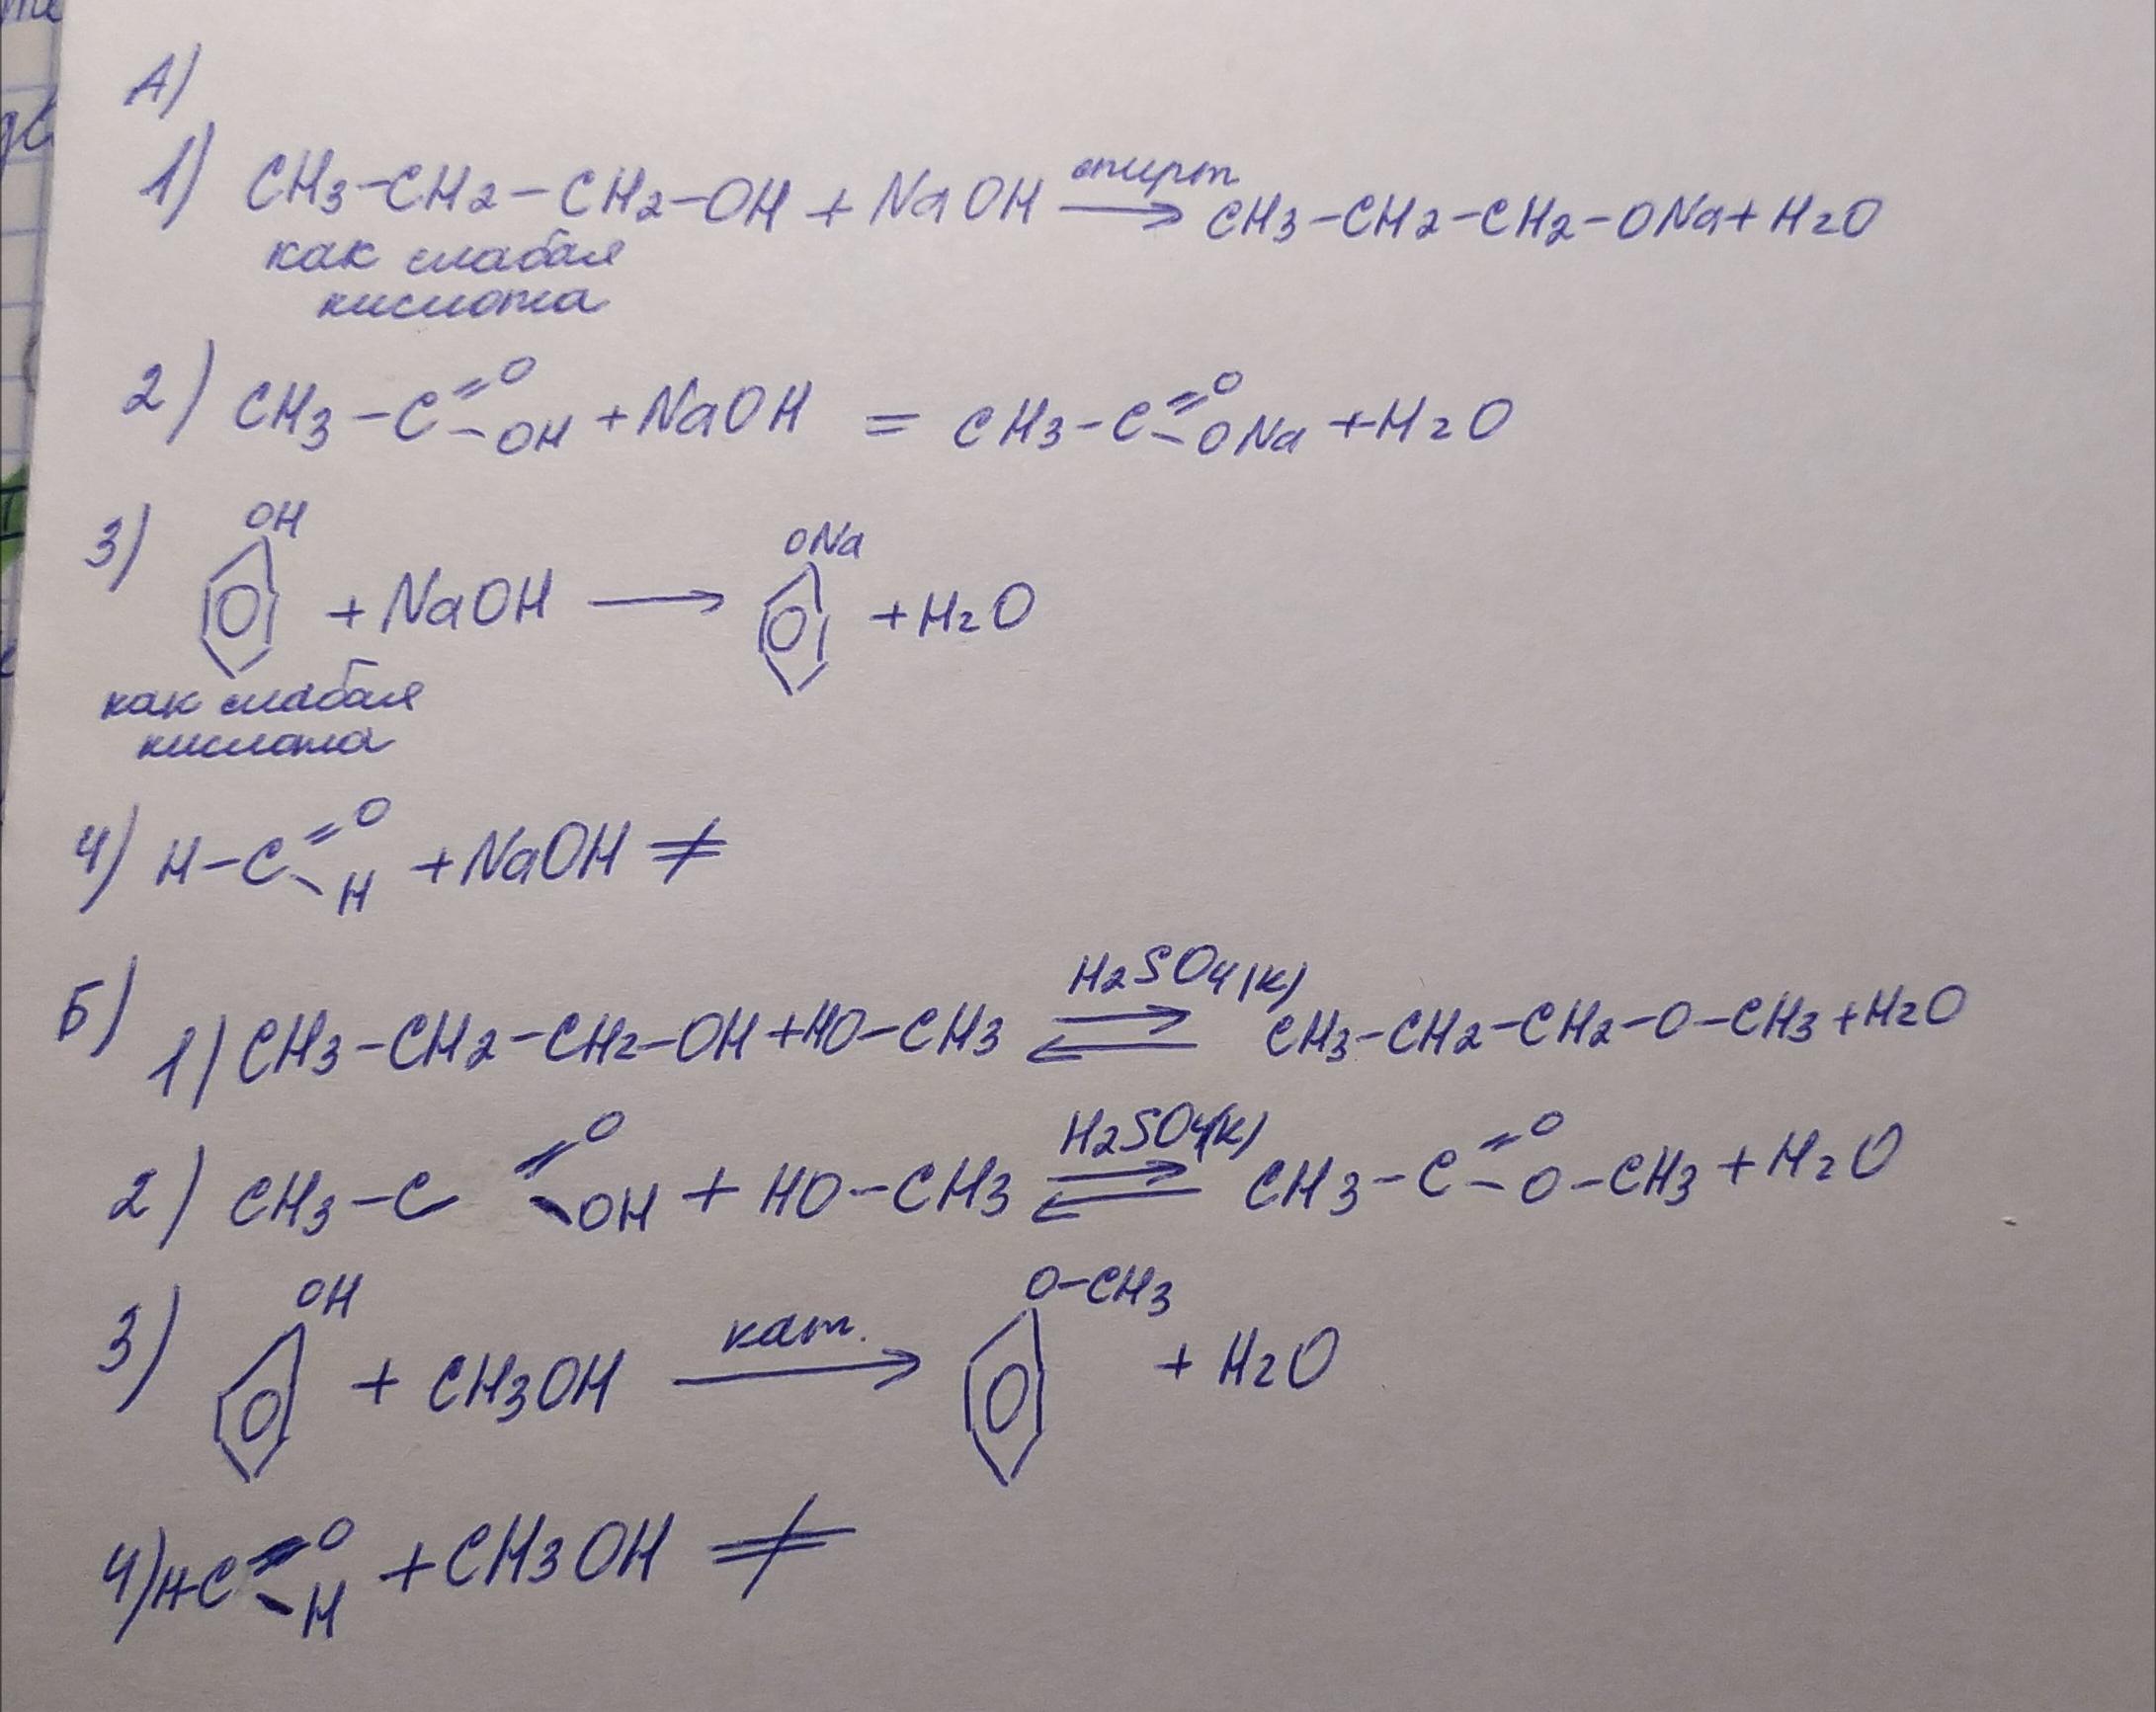 А)
1) CH3-CH2-CH2-OH + NaOH спирт⟶ CH3-CH2-CH2-ONa + H2O
как слабая
кислота
2) CH3-C=O-OH + NaOH = CH3-C=O-ONa + H2O
OH ONa
3) + NaOH ⟶ + H2O
как слабая
кислота
4) H-C=O-H + NaOH ≠
Б)
1) CH3-CH2-CH2-OH + HO-CH3 H2SO4(к)⇌ CH3-CH2-CH2-O-CH3 + H2O
2) CH3-C=O-OH + HO-CH3 H2SO4(к)⇌ CH3-C=O-O-CH3 + H2O
OH O-CH3
3) + CH3OH кат.⟶ + H2O
4) H-C=O-H + CH3OH ≠